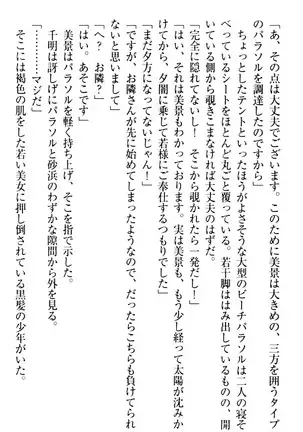 「あ、その点は大丈夫でございます。このために美景は大きめの、三方を囲うタイプ
のパラソルを調達したのですから」
ちょっとしたテントといったほうがよさそうな大型のビーチパラソルは二人の寝そ
べっているシートをほとんど丸ごと覆っている。若干脚ははみ出しているものの、開
いている側から覗きこまなければ大丈夫のはずだ。
「完全に隠れてないし！　そこから覗かれたら一発だし！」
「はい、それは美景もわかっております。実は美景も、もう少し経って太陽が沈みか
けてから、夕闇に乗じて若様にご奉仕するつもりでした」
「まだ夕方になってないじゃん！」
「ですが、お隣さんが先に始めてしまったようなので、だったらこちらも負けてられ
ないと思いまして」
「へ？　お隣？」
「はい。あそこです」
美景はパラソルを軽く持ち上げ、そこを指で示した。
千明は訝しげにパラソルと砂浜のわずかな隙間から外を見る。
「…………マジだ」
そこには褐色の肌をした若い美女に押し倒されている黒髪の少年がいた。